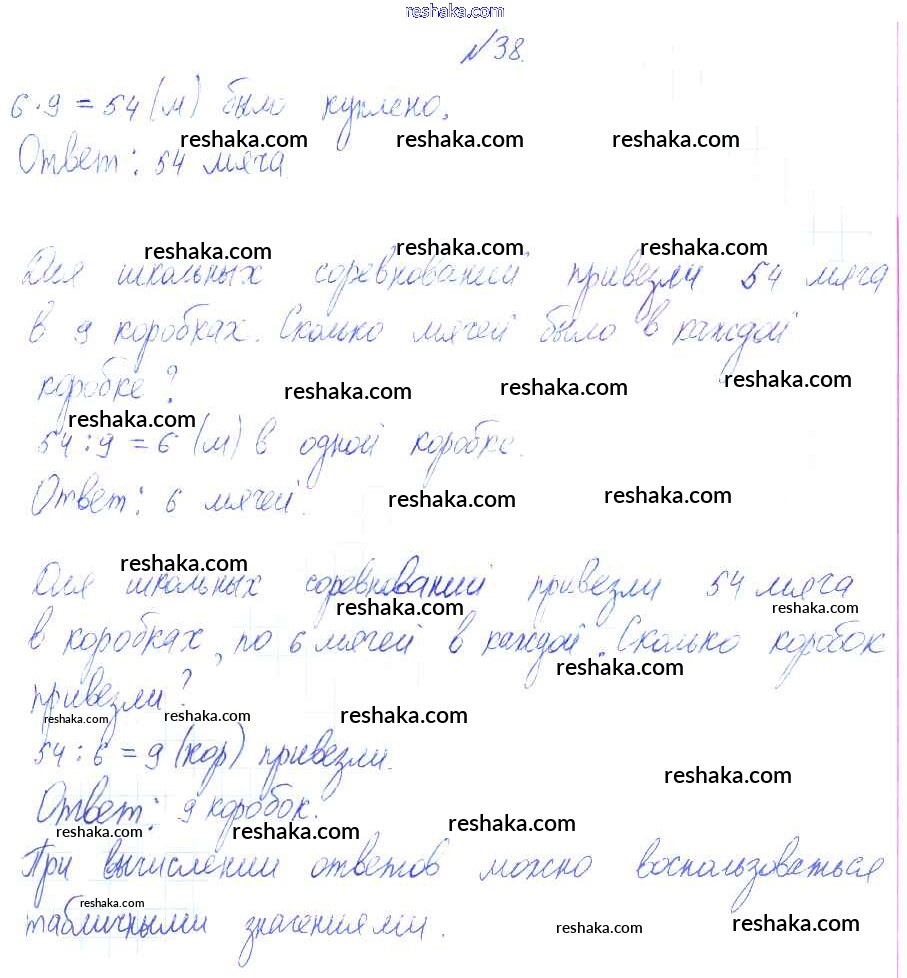 reshaka.com
№38.
6·9=54 (м) было куплено.
reshaka.com reshaka.com reshaka.com
Ответ: 54 мяча
reshaka.com reshaka.com reshaka.com
Для школьных соревнований привезли 54 мяча
в 9 коробках. Сколько мячей было в каждой
коробке?
reshaka.com reshaka.com reshaka.com
reshaka.com
54:9=6 (м) в одной коробке.
Ответ: 6 мячей.
reshaka.com reshaka.com
reshaka.com
Для школьных соревнований привезли 54 мяча
reshaka.com reshaka.com
в коробках, по 6 мячей в каждой. Сколько коробок
reshaka.com
привезли?
reshaka.com reshaka.com reshaka.com
54:6=9 (кор) привезли.
reshaka.com
Ответ: 9 коробок.
reshaka.com reshaka.com reshaka.com
При вычислении ответов можно воспользоваться
reshaka.com
табличными значениями.
reshaka.com reshaka.com